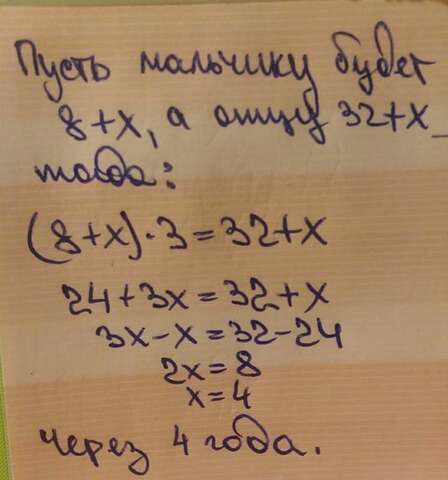 Пусть мальчику будет
8+x, а отцу 32+x
тогда:
(8+x)·3=32+x
24+3x=32+x
3x-x=32-24
2x=8
x=4
через 4 года.